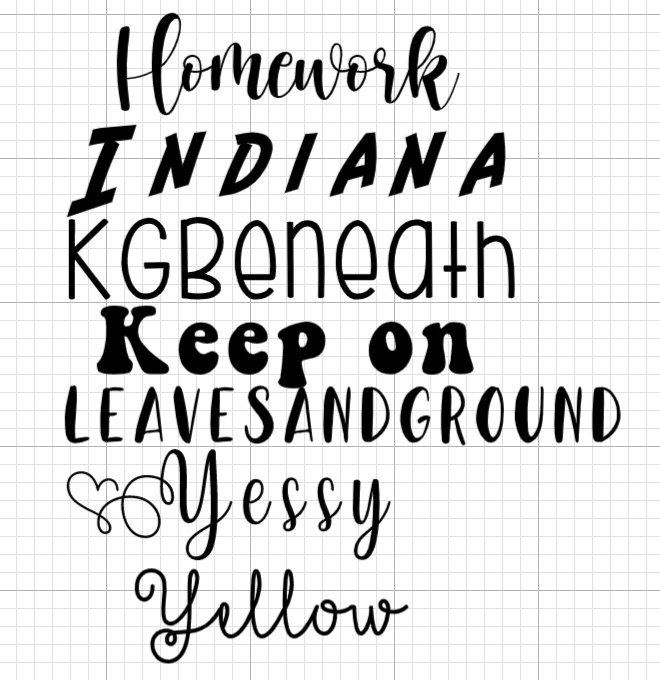 Homework
INDIANA
KGBeneath
Keep on
LEAVESANDGROUND
Yessy
Yellow